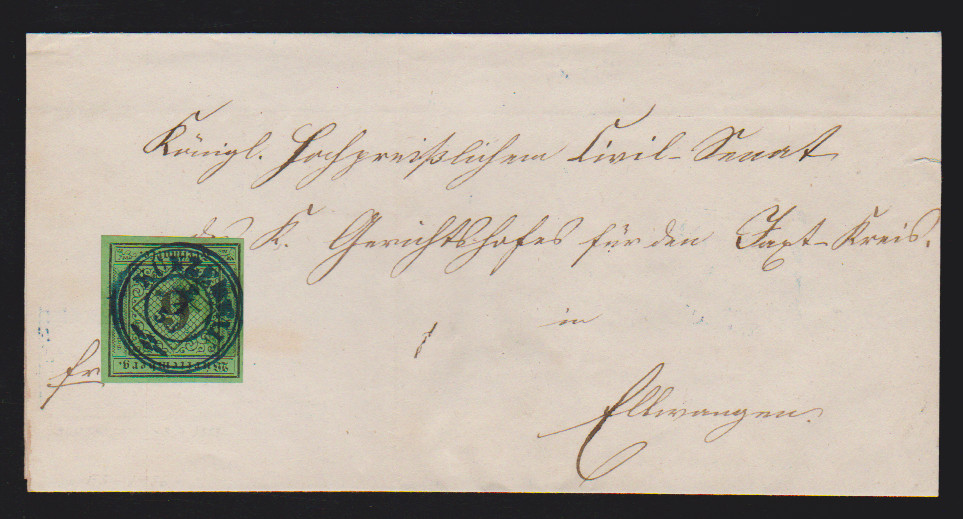 Königl. Hochpreißlichem Civil-Senat
des K. Gerichtshofes für den Jaxt-Kreis.
in
Ellwangen.
fr
9
Württemberg.